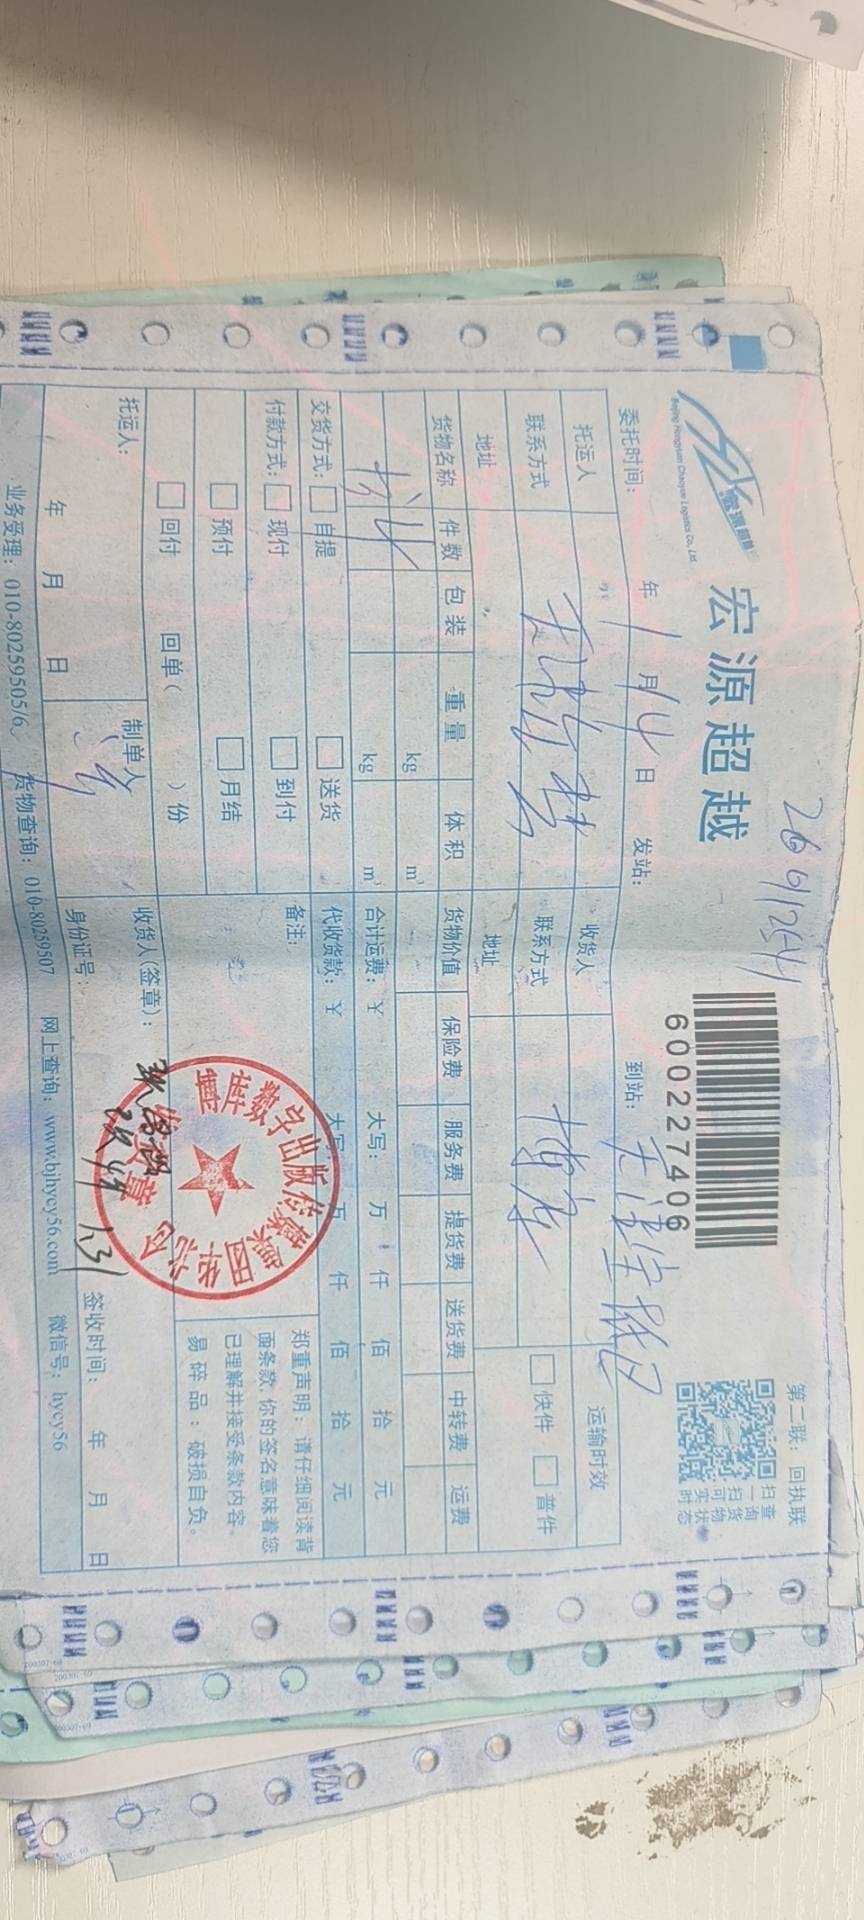 宏源超越
Beijing Hongyuan Chaoyue Logistics Co., Ltd.
6000227406
第二联：回执联
扫查
一询
扫货
可物
实状
时态
委托时间： 年 1 月 14 日 发站： 到站：天津
托运人
收货人
运输时效
联系方式
联系方式
博库
快件 普件
地址
地址
货物名称 件数 包装 重量 体积 货物价值 保险费 服务费 提货费 送货费 中转费 运费
kg m³
kg m³
合计运费：￥ 大写： 万 仟 佰 拾 元
交货方式： 自提 送货
代收货款：￥ 大写： 万 仟 佰 拾 元
付款方式： 现付 到付
备注：
预付 月结
回付 回单（ ）份
郑重声明：请仔细阅读背
面条款，你的签名意味着您
已理解并接受条款内容。
易碎品：破损自负。
博库数字出版传媒集团
托运人：
年 月 日
制单人
收货人(签章)：
身份证号：
签收时间： 年 月 日
业务受理：010-80259505/6 货物查询：010-80259507 网上查询：www.bjhycy56.com 微信号：hycy56